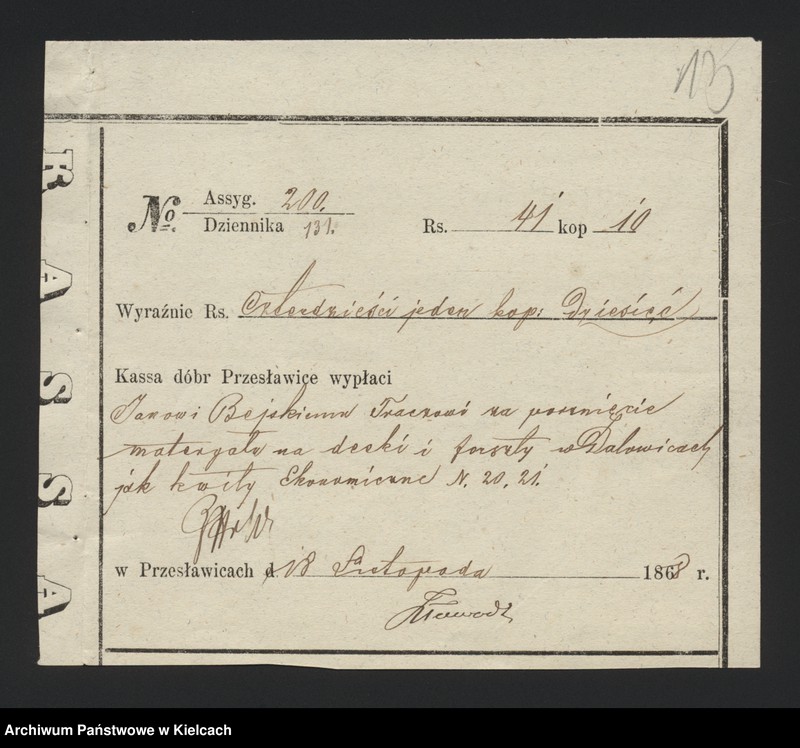 13
KASSA
No. Assyg. 200.
Dziennika 131.
Rs. 41 kop 10
Wyraźnie Rs. Czterdzieści jeden kop: Dziesięć
Kassa dóbr Przesławice wypłaci
Janowi Bejskiemu Traczowi za porznięcie
materyału na deski i forszty w Dalowicach
jak kwity Ekonomiczne N. 20, 21.
w Przesławicach d. 18 Listopada 1868 r.
Archiwum Państwowe w Kielcach